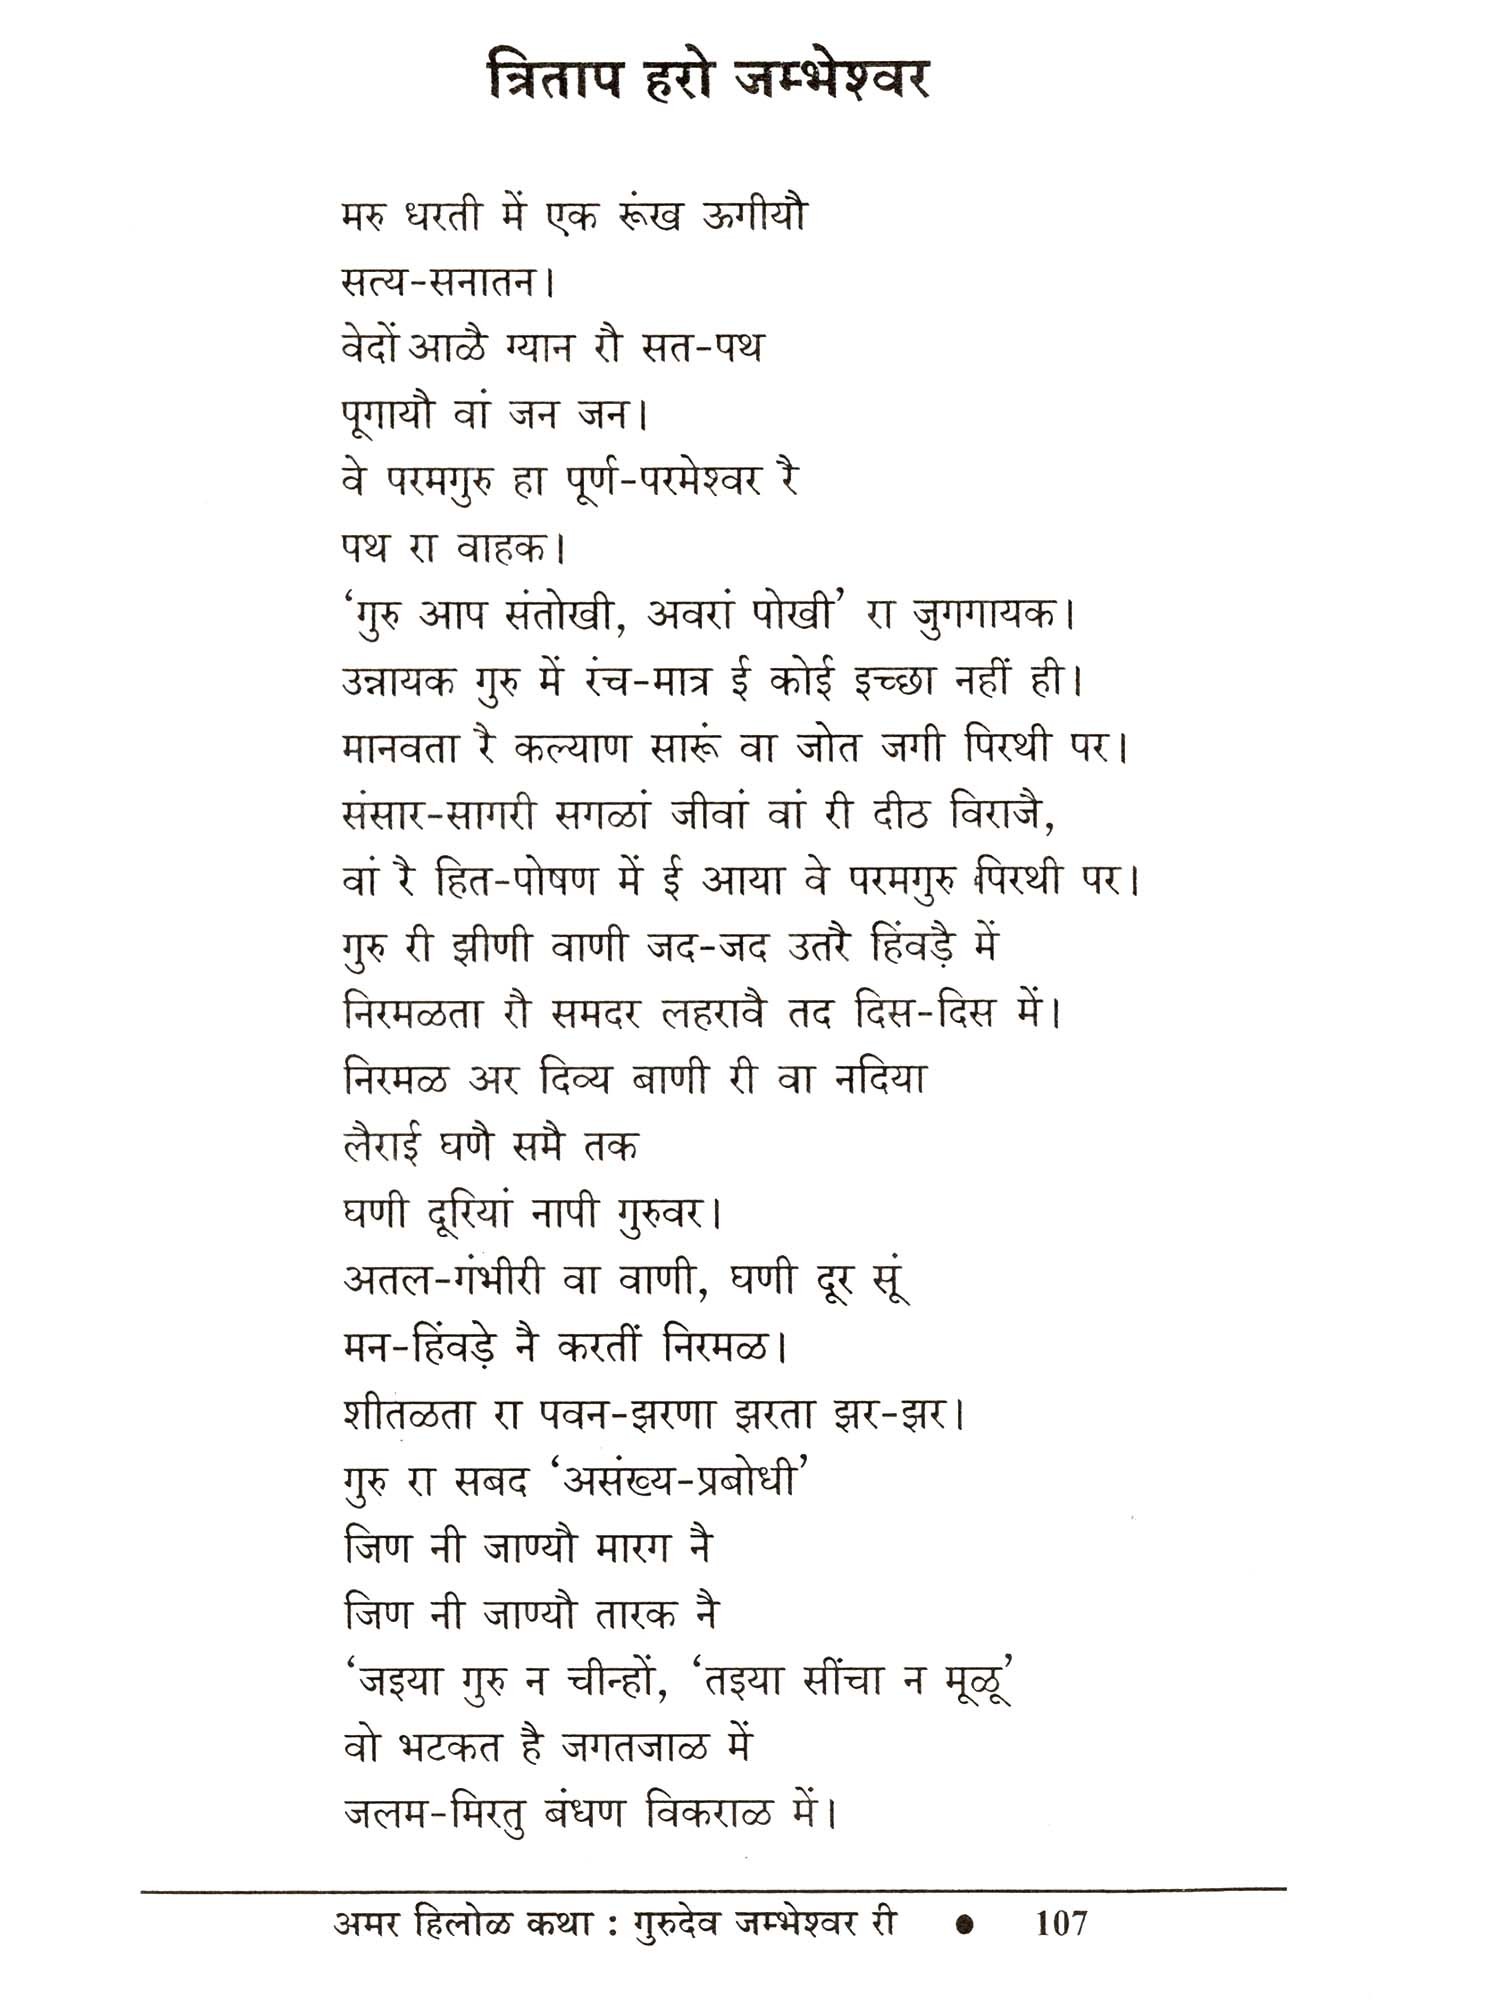 त्रिताप हरो जम्भेश्वर
मरु धरती में एक रूंख ऊगीयौ
सत्य-सनातन।
वेदों आळै ग्यान रौ सत-पथ
पूगायौ वां जन जन।
वे परमगुरु हा पूर्ण-परमेश्वर रै
पथ रा वाहक।
‘गुरु आप संतोखी, अवरां पोखी’ रा जुगगायक।
उन्नायक गुरु में रंच-मात्र ई कोई इच्छा नहीं ही।
मानवता रै कल्याण सारूं वा जोत जगी पिरथी पर।
संसार-सागरी सगळां जीवां वां री दीठ विराजै,
वां रै हित-पोषण में ई आया वे परमगुरु पिरथी पर।
गुरु री झीणी वाणी जद-जद उतरै हिंवड़ै में
निरमळता रौ समदर लहरावै तद दिस-दिस में।
निरमळ अर दिव्य बाणी री वा नदिया
लैराई घणै समै तक
घणी दूरियां नापी गुरुवर।
अतल-गंभीरी वा वाणी, घणी दूर सूं
मन-हिंवड़े नै करतीं निरमळ।
शीतळता रा पवन-झरणा झरता झर-झर।
गुरु रा सबद ‘असंख्य-प्रबोधी’
जिण नी जाण्यौ मारग नै
जिण नी जाण्यौ तारक नै
‘जइया गुरु न चीन्हों, ‘तइया सींचा न मूळू’
वो भटकत है जगतजाळ में
जलम-मिरतु बंधण विकराळ में।
अमर हिलोळ कथा : गुरुदेव जम्भेश्वर री ● 107